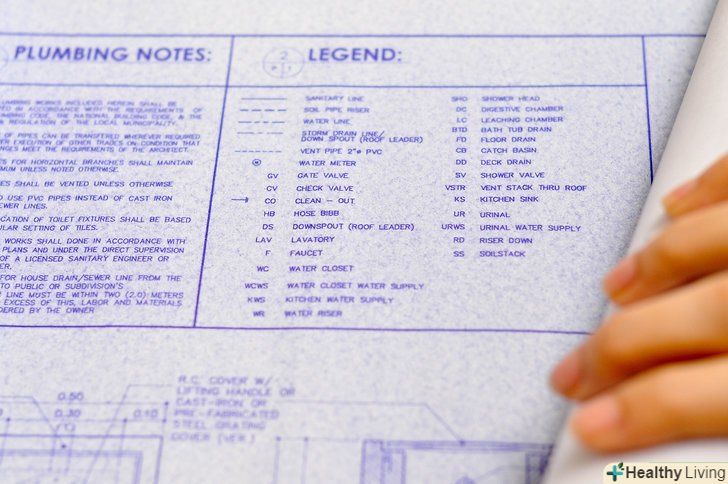 PLUMBING NOTES:
UMBING WORKS INCLUDED HEREIN SHALL BE
ED IN ACCORDANCE WITH THE REQUIREMENTS OF
MBING CODE, THE NATIONAL BUILDING CODE, & THE
& REGULATION OF THE LOCAL MUNICIPALITY.
OF PIPES CAN BE TRANSFERED WHEREVER REQUIRED
ER EXECUTION OF OTHER TRADES ON CONDITION THAT
NGES MEET THE REQUIREMENTS OF THE ARCHITECT.
ES FOR HORIZONTAL BRANCHES SHALL MAINTAIN
MUM UNLESS NOTED OTHERWISE.
ES SHALL BE VENTED UNLESS OTHERWISE
O USE PVC PIPES INSTEAD OF CAST IRON
EWER LINES.
CATION OF TOILET FIXTURES SHALL BE BASED
ILAR SETTING OF TILES.
WORKS SHALL DONE IN ACCORDANCE WITH
PLANS AND UNDER THE DIRECT SUPERVISION
OF A LICENSED SANITARY ENGINEER OR
ER.
FOR HOUSE DRAIN/SEWER LINE FROM THE
TO PUBLIC OR SUBDIVISION'S
LINE MUST BE WITHIN TWO (2.0) METERS
EXCESS OF THIS, LABOR AND MATERIALS
DERED BY THE OWNER
2
P 1
LEGEND:
SANITARY LINE
SOIL PIPE RISER
WATER LINE
STORM DRAIN LINE/
DOWN SPOUT (ROOF LEADER)
VENT PIPE 2"ø PVC
WATER METER
GV GATE VALVE
CV CHECK VALVE
CO CLEAN - OUT
HB HOSE BIBB
DS DOWNSPOUT (ROOF LEADER)
LAV LAVATORY
F FAUCET
WC WATER CLOSET
WCWS WATER CLOSET WATER SUPPLY
KWS KITCHEN WATER SUPPLY
WR WATER RISER
SHO SHOWER HEAD
DC DIGESTIVE CHAMBER
LC LEACHING CHAMBER
BTD BATH TUB DRAIN
FD FLOOR DRAIN
CB CATCH BASIN
DD DECK DRAIN
SV SHOWER VALVE
VSTR VENT STACK THRU ROOF
KS KITCHEN SINK
UR URINAL
URWS URINAL WATER SUPPLY
RD RISER DOWN
SS SOILSTACK
R.C. COVER W/
LIFTING HANDLE OR
CAST-IRON OR
PRE-FABRICATED
STEEL GRATING
COVER (VER.)
0.50
0.30
0.10
Healthy Living